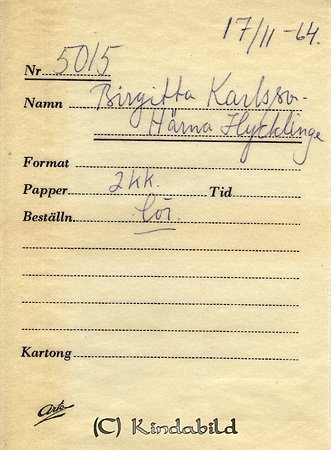 17/11-64.
Nr 5015
Namn Birgitta Karlsson
Härna Hycklinge
Format
Papper 2kk. Tid
Beställn. lör
Kartong
Arto
(C) Kindabild